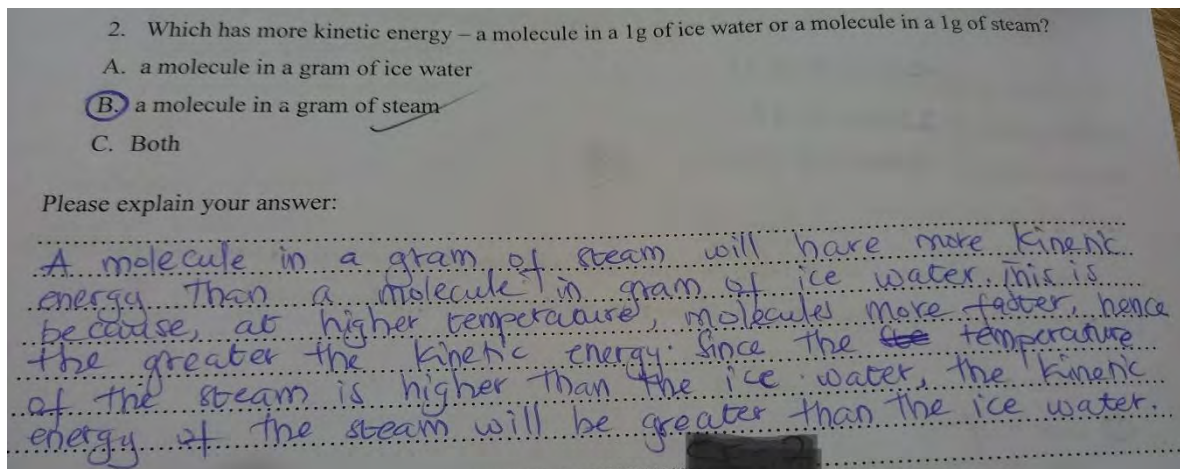 2. Which has more kinetic energy – a molecule in a 1g of ice water or a molecule in a 1g of steam?
A. a molecule in a gram of ice water
B. a molecule in a gram of steam
C. Both
Please explain your answer:
A molecule in a gram of steam will have more Kinetic
energy than a molecule in gram of ice water. This is
because, at higher temperature, molecules move faster, hence
the greater the kinetic energy. Since the temperature
of the steam is higher than the ice water, the kinetic
energy of the steam will be greater than the ice water.